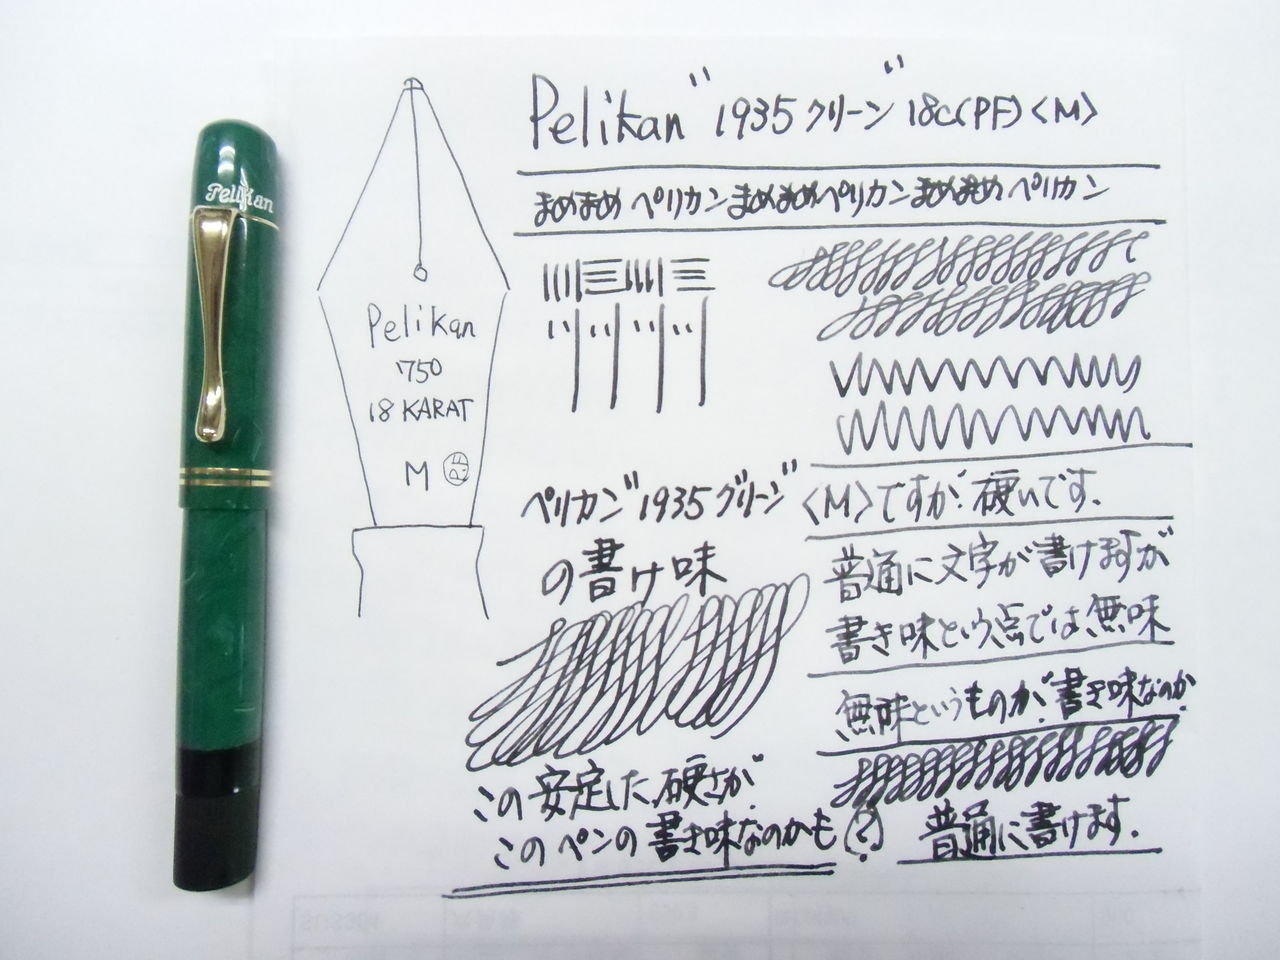 Pelikan
Pelikan "1935グリーン" 18C(PF)〈M〉
まめまめペリカンまめまめペリカンまめまめペリカン
Pelikan
750
18 KARAT
M PF
ペリカン"1935グリーン"
の書け味
この安定した硬さが
このペンの書き味なのかも(?)
〈M〉ですが硬いです.
普通に文字が書けますが
書き味という点では無味
無味というものが書き味なのか
普通に書けます.